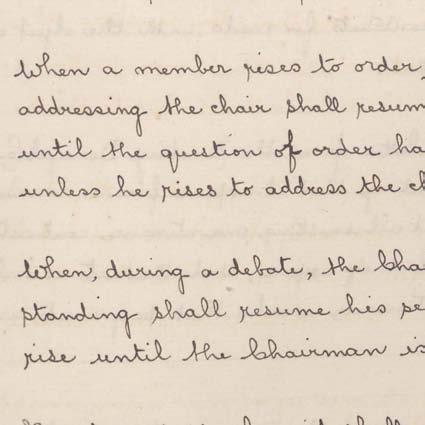 When a member rises to order,
addressing the chair shall resum
until the question of order ha
unless he rises to address the ch
When, during a debate, the Chai
standing shall resume his se
rise until the Chairman is